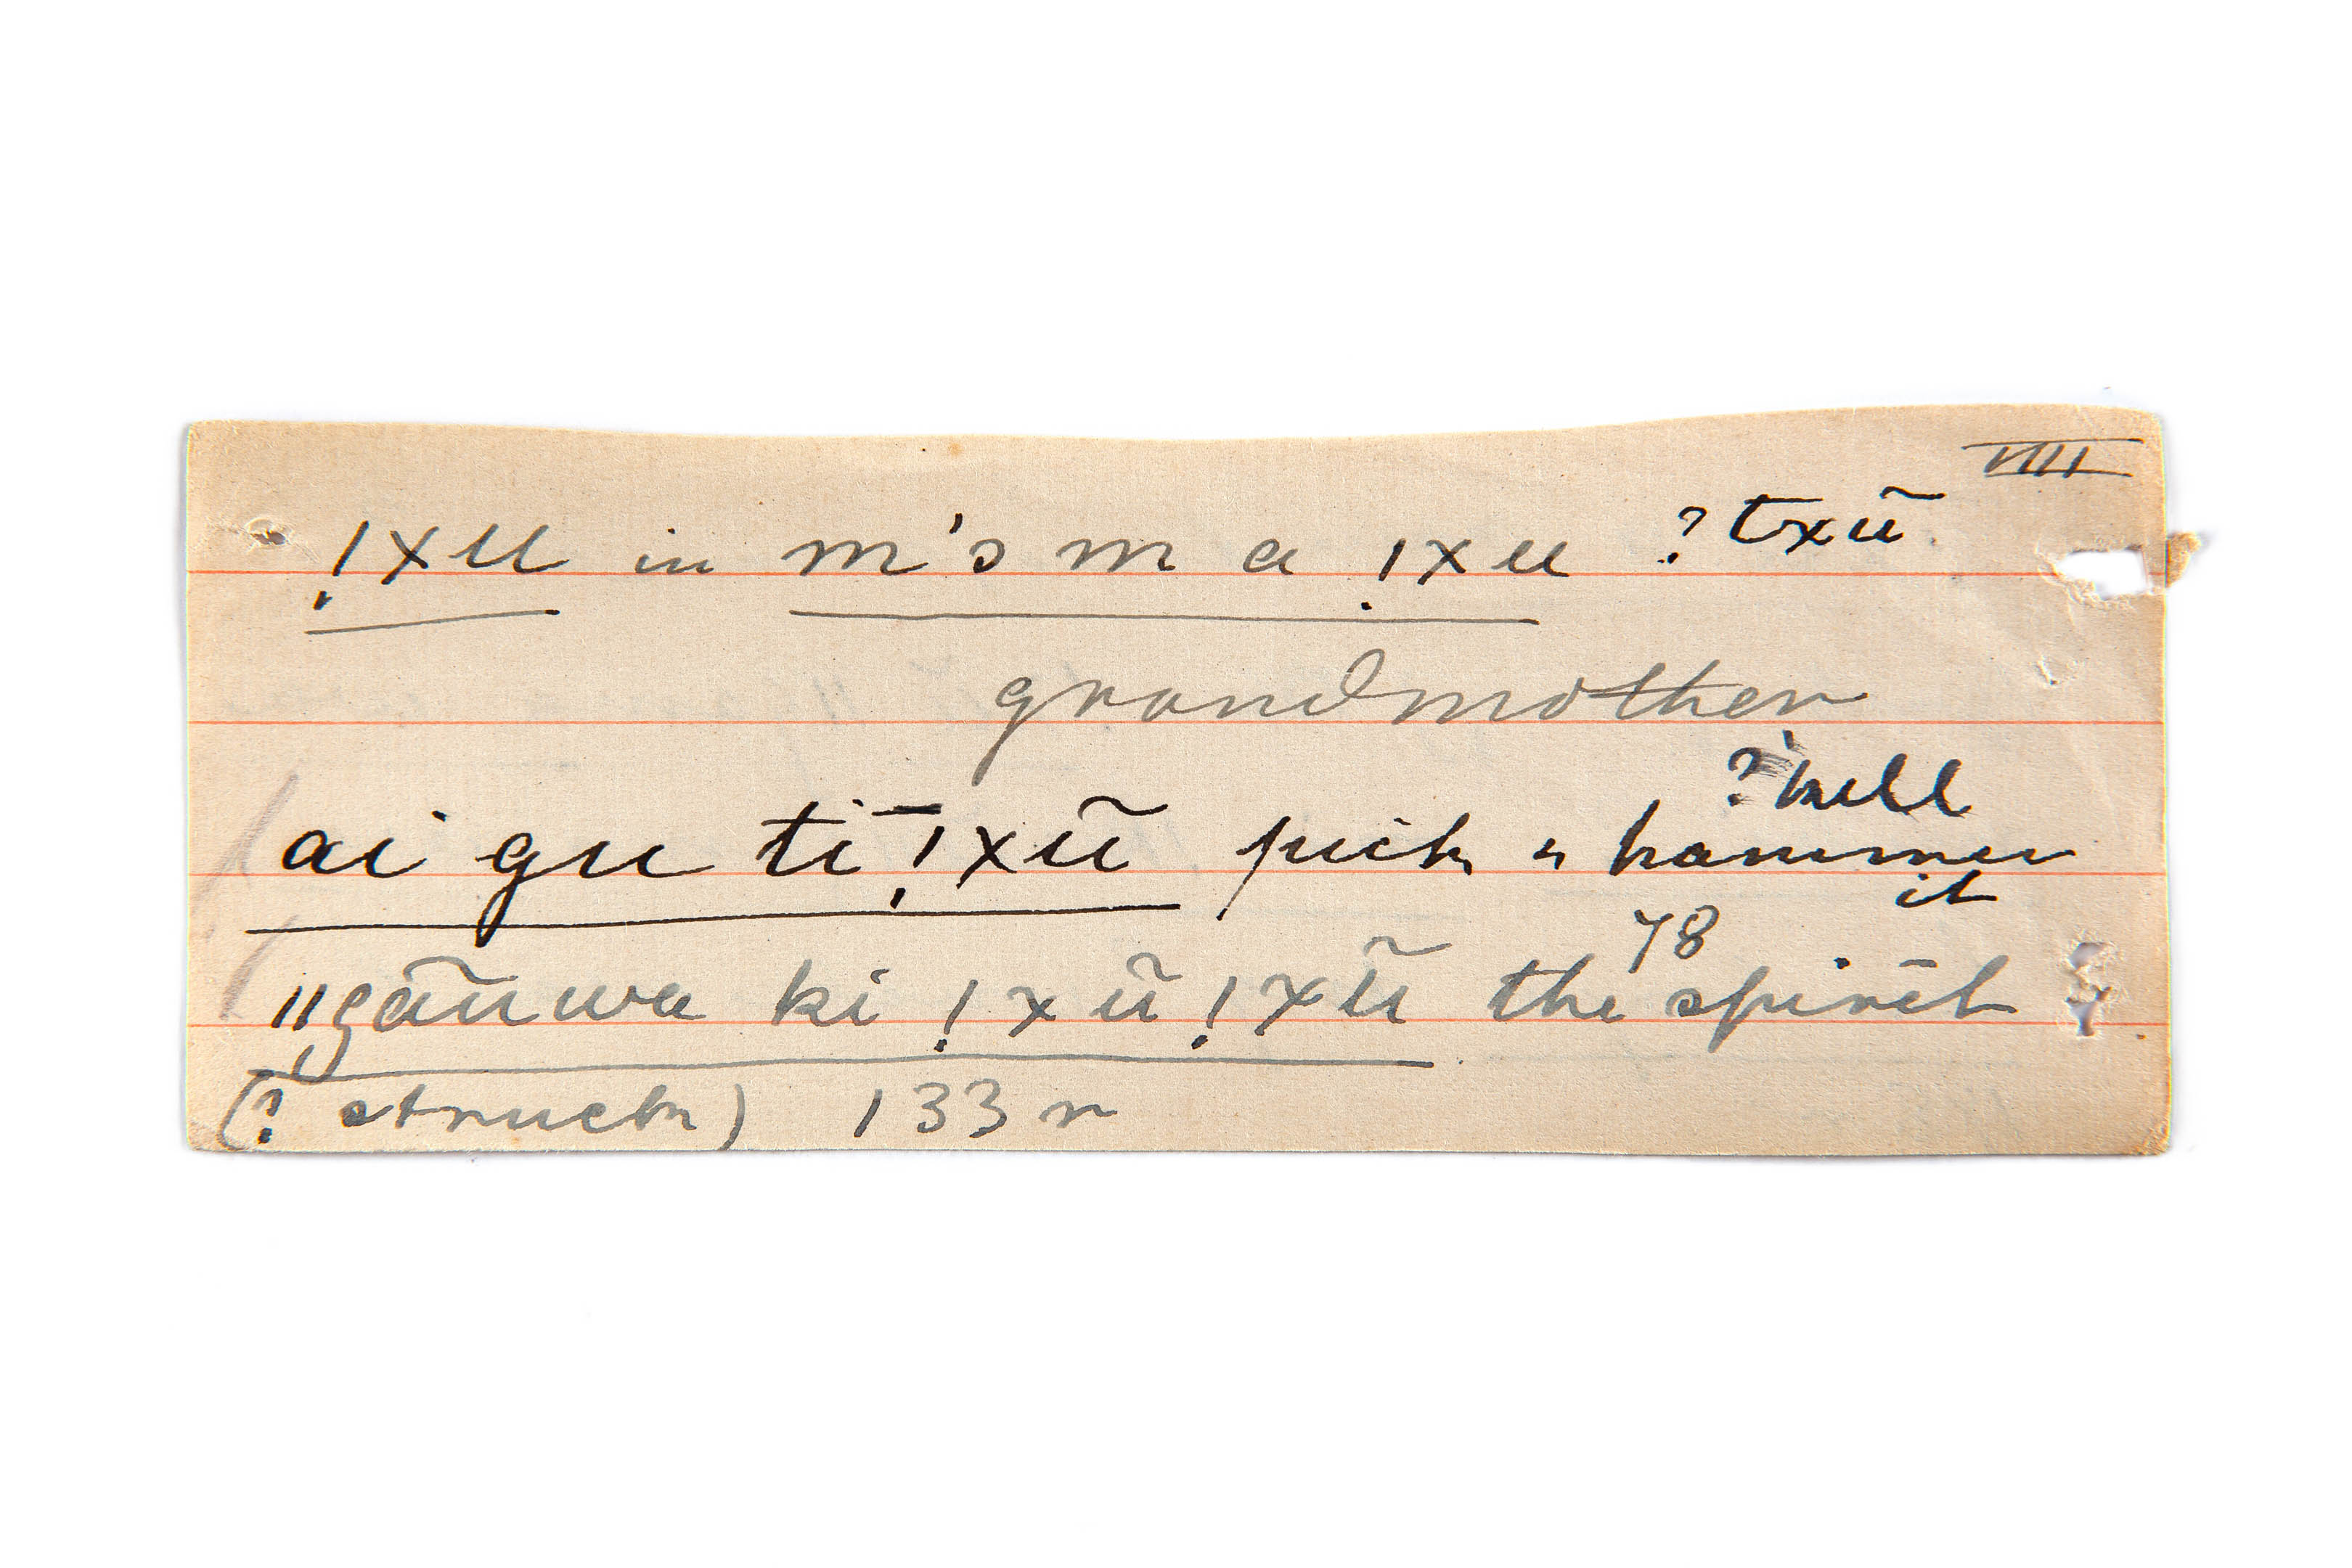 VIII
!xu in m's m a !xu ? txũ
grandmother
? kill
ai gu tĩ !xũ pick & hammer
it
78
ǁgãuwa ki !xũ !xũ the spirit
(? struck) 133 r